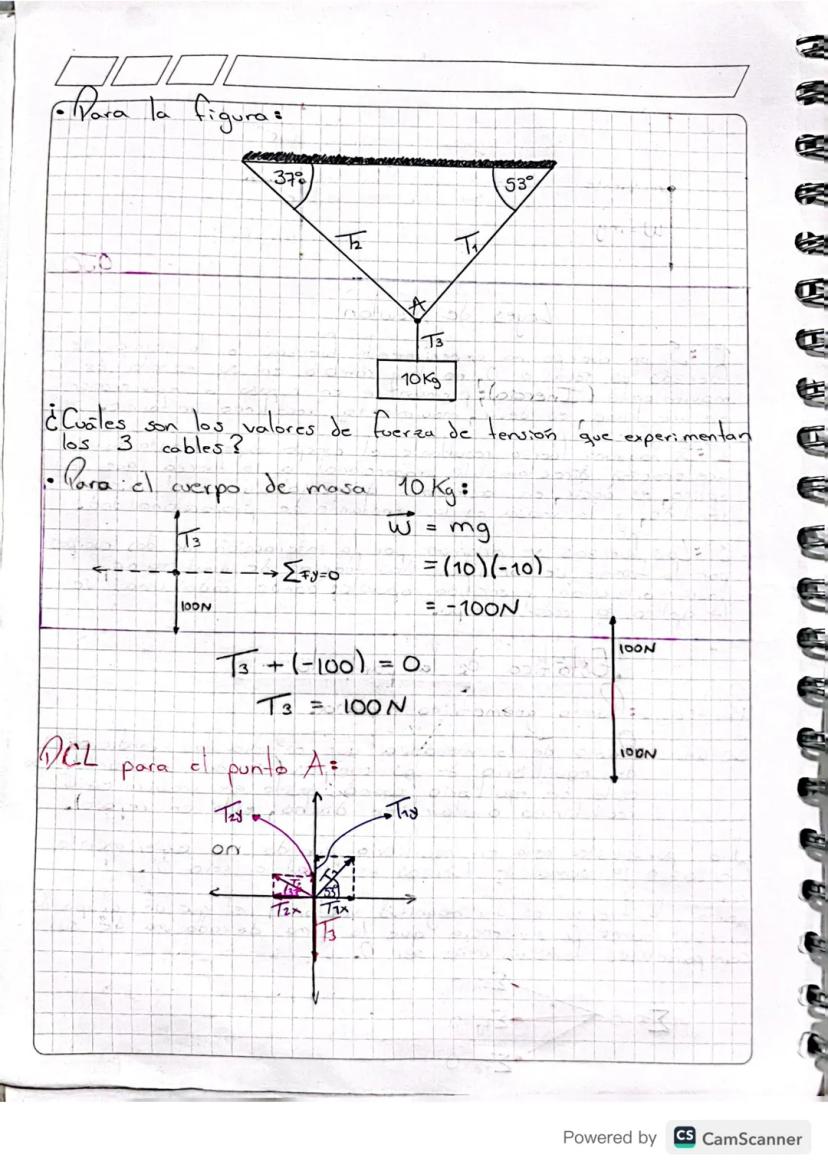 • Para la figura:
37°
53°
T2
T1
A
T3
10Kg
¿Cuáles son los valores de fuerza de tensión que experimentan
los 3 cables?
• Para el cuerpo de masa 10 Kg:
T3
ΣFy=0
100N
W = mg
= (10)(-10)
= -100N
T3 + (-100) = 0
T3 = 100N
100N
100N
DCL para el punto A:
T2y
T1y
on
53°
T2x
T1x
T3
Powered by CS CamScanner